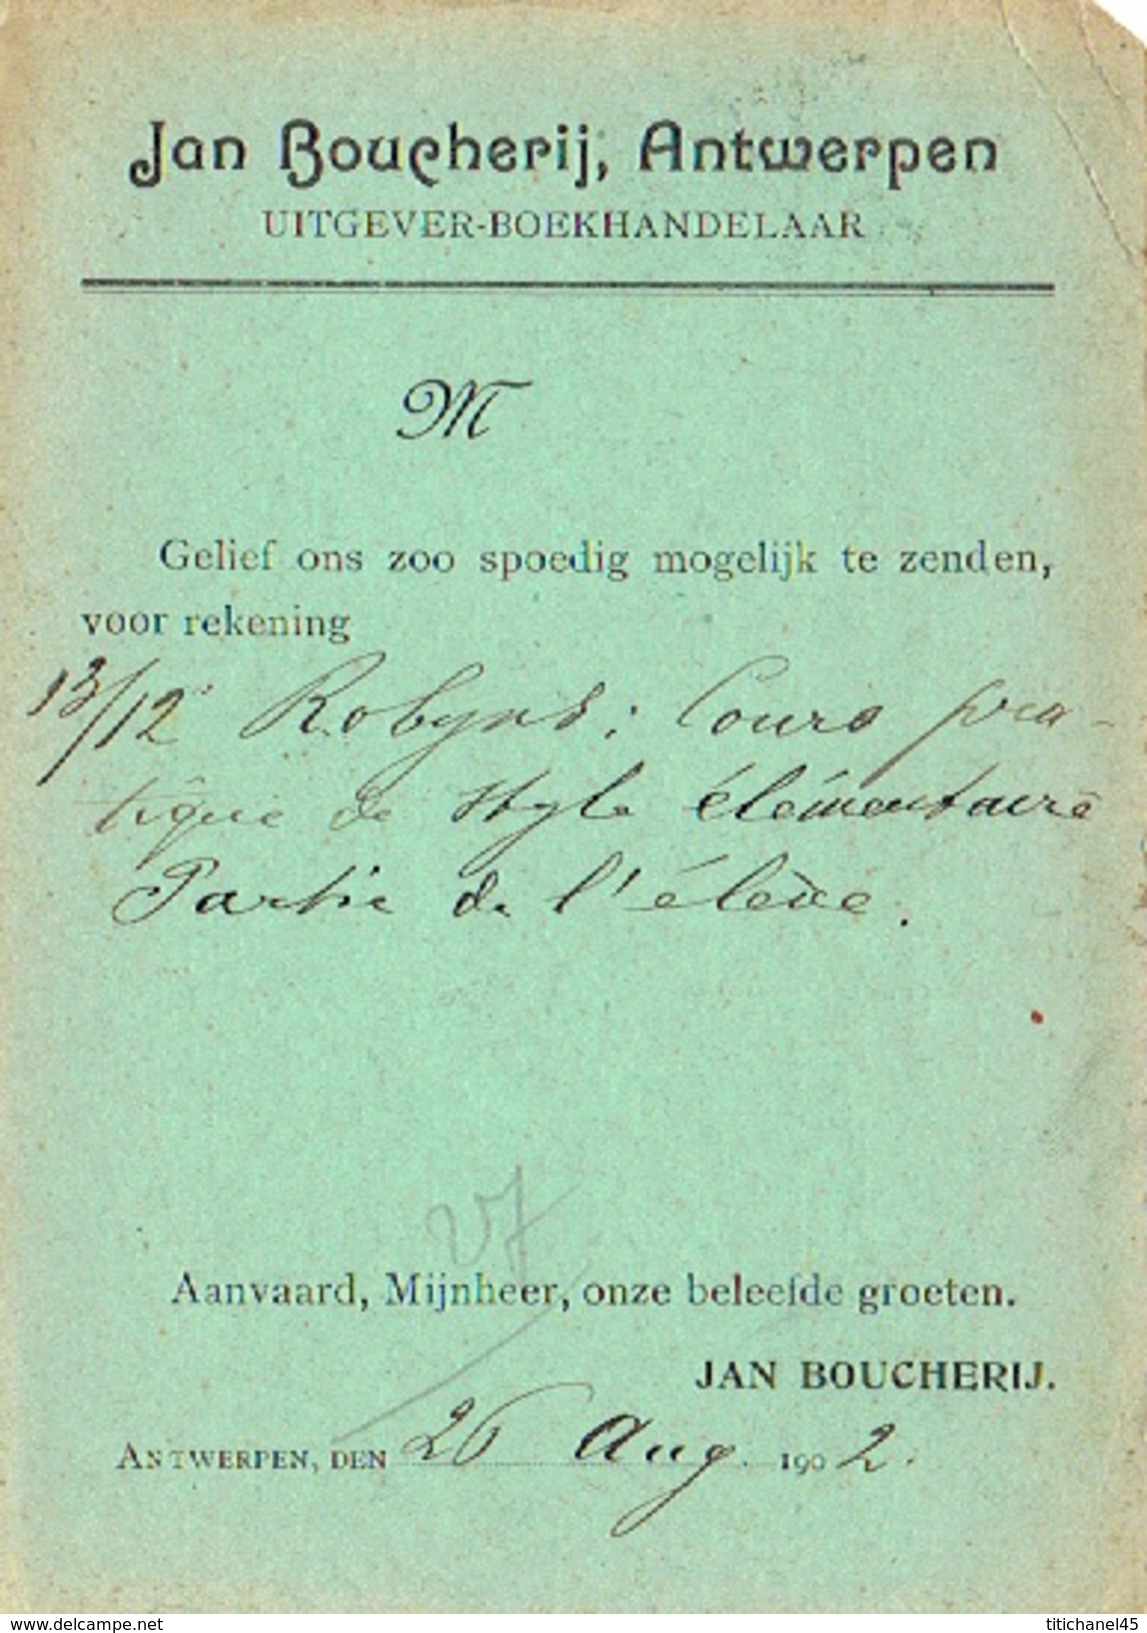 Jan Boucherij, Antwerpen
UITGEVER-BOEKHANDELAAR
M
Gelief ons zoo spoedig mogelijk te zenden,
voor rekening
13/12 Robyns: Cours pra-
tique de Style élémentaire
Partie de l'élève.
Aanvaard, Mijnheer, onze beleefde groeten.
JAN BOUCHERIJ.
ANTWERPEN, DEN 26 Aug. 1902.
delcampe.net
titichanel45